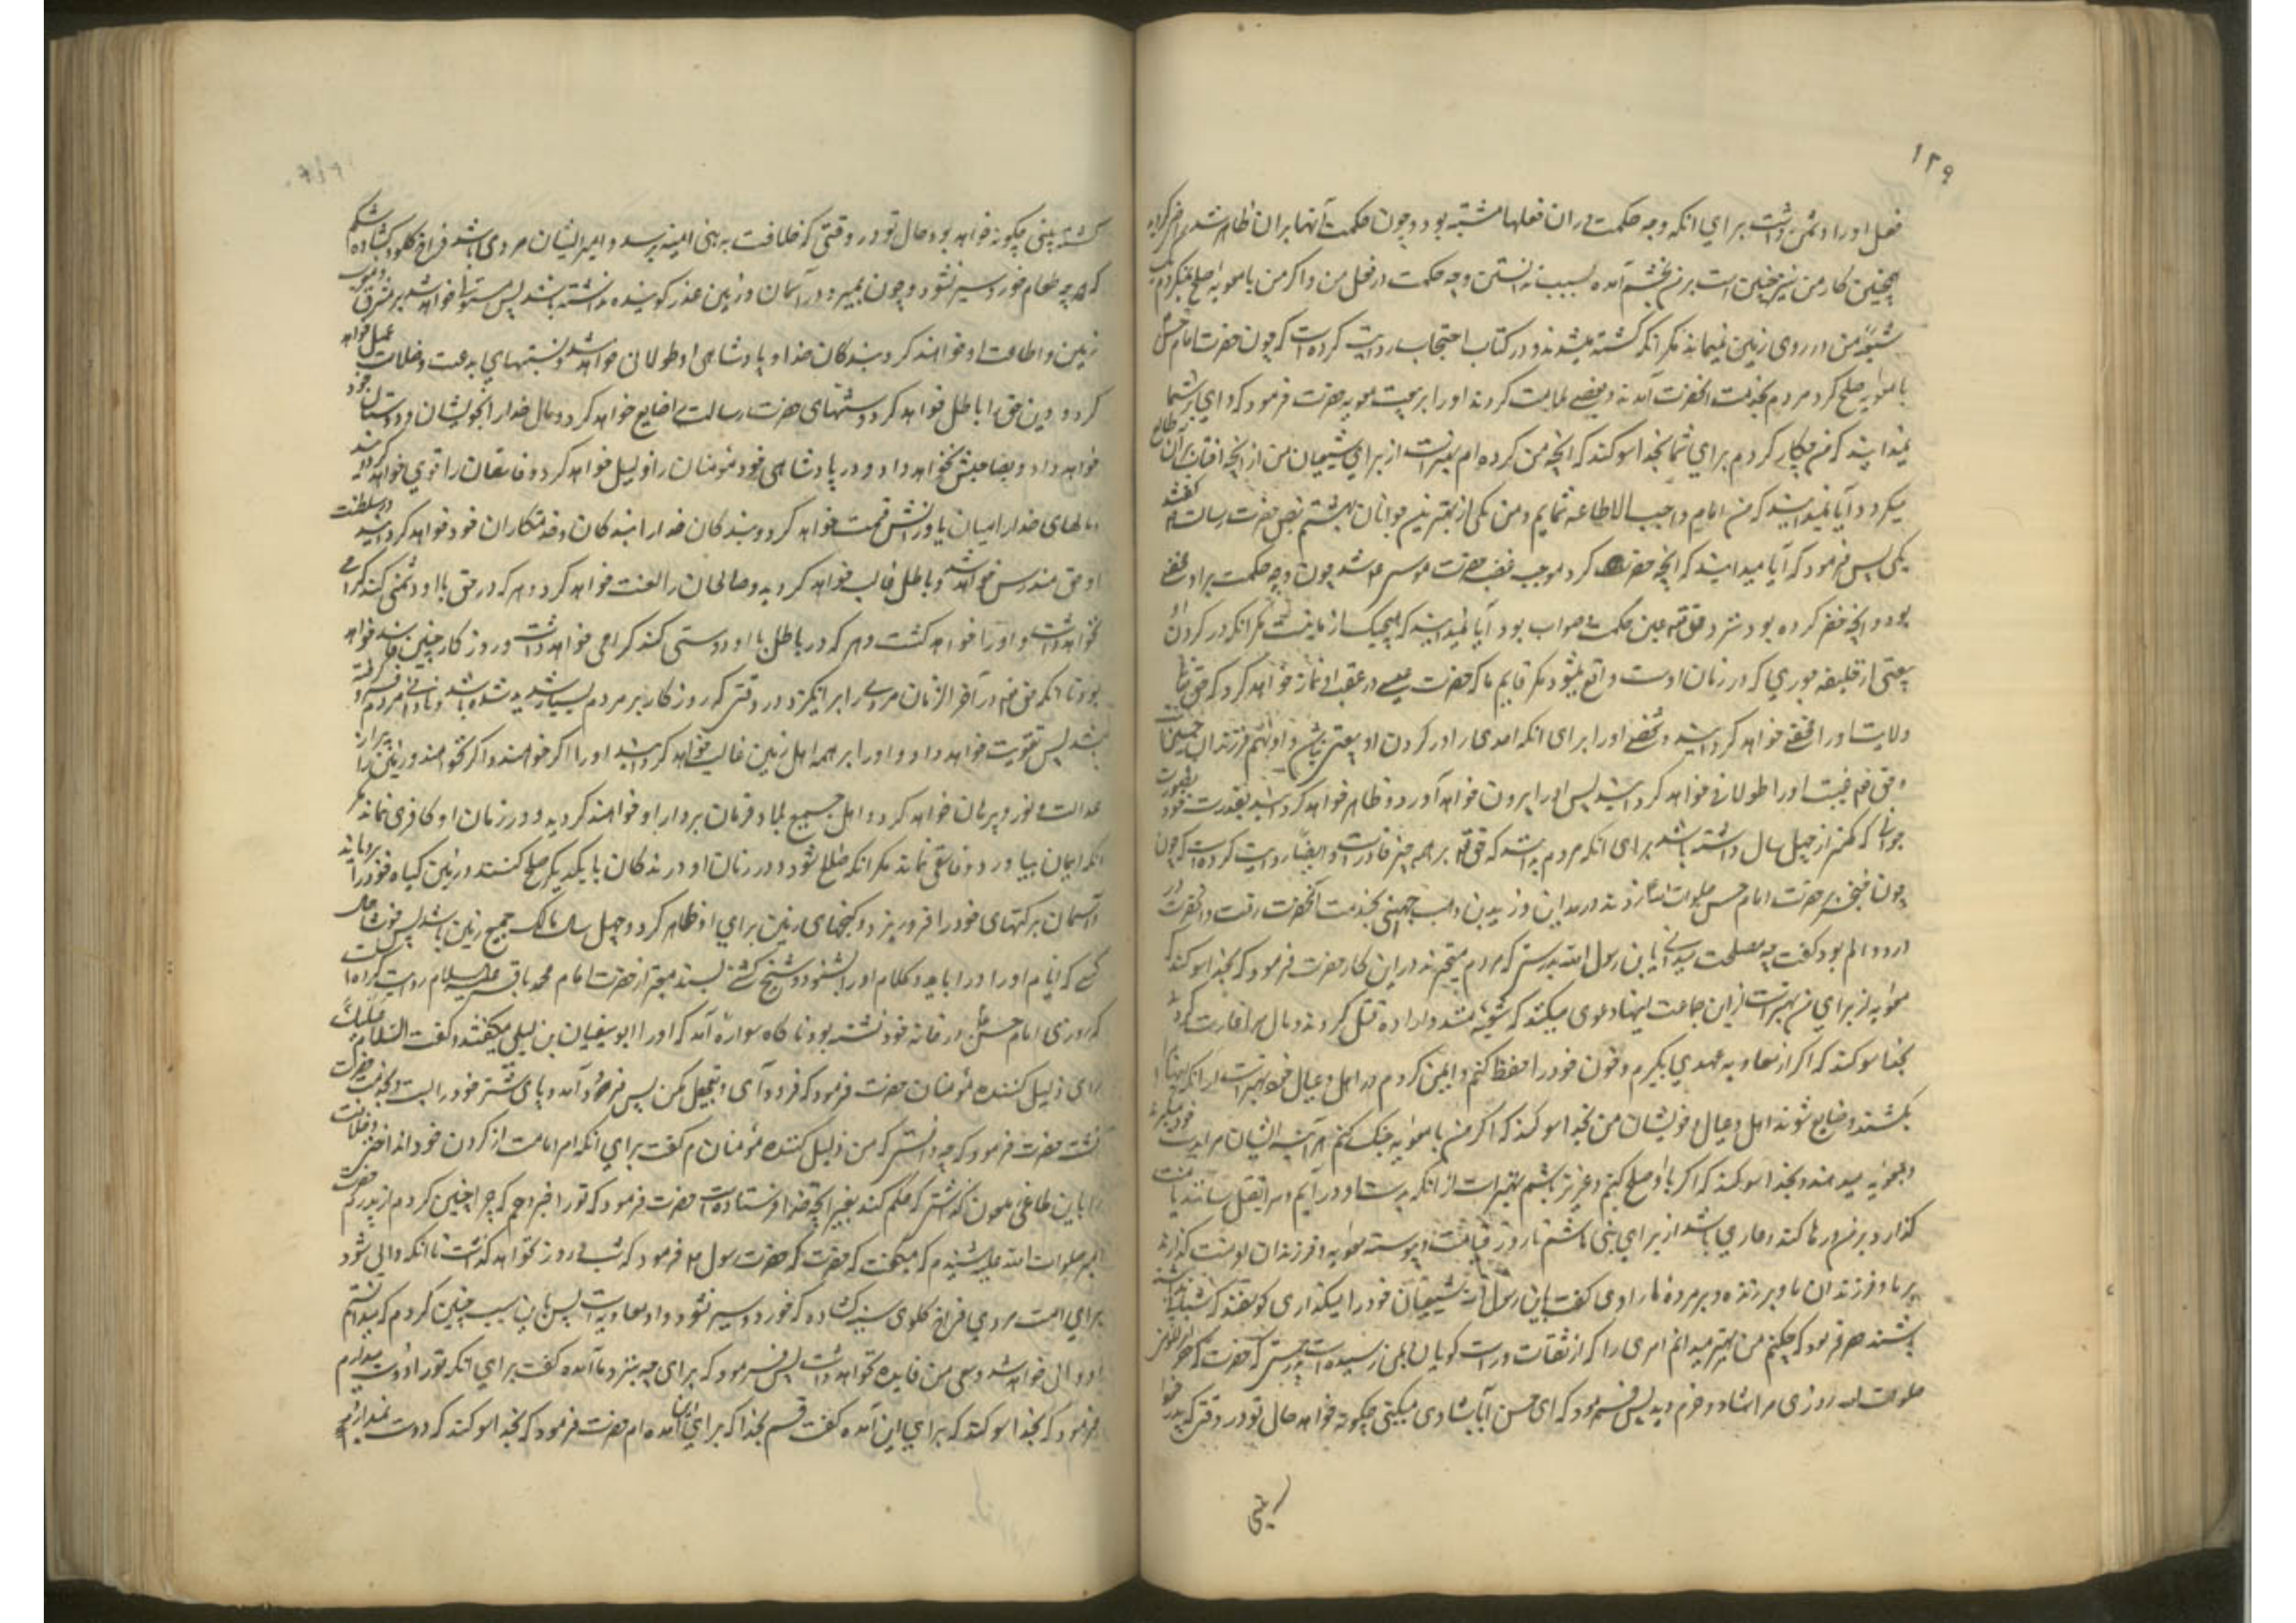 ۱۲۹
فعل او را دشمن داشت برای انکه وجه حکمت در ان فعلها مشتبه بود و چون حکمت آنها بر ان ظاهر شد
همچنین کار من نیز چنین است بر من بخشم آمده بسبب ندانستن وجه حکمت در فعل من و اکر من با معویه صلح نمیکردم
شیعه من در روی زمین نمیماند مکر انکه کشته میشد و در کتاب احتجاب روایت کرده است که چون حضرت امام حسن
با معویه صلح کرد مردم بخدمت انحضرت آمدند و بعضی ملامت کردند او را بر بیعت معویه حضرت فرمود که وای بر شما
نمیدانید که من چکار کردم برای شما بخدا سوکند که انچه من کرده ام بهتر است از برای شیعیان من از انچه افتاب بران طالع
میکردد آیا نمیدانید که من امام واجب الاطاعه شمایم و من یکی از بهترین جوانان بهشتم بنص حضرت رسالت کفتند
بلی پس فرمود که آیا میدانید که انچه خضر کرد موجب غضب حضرت موسی شد چون وجه حکمت بر او مخفی
بود و انچه خضر کرده بود نزد حق تعم عین حکمت و صواب بود آیا نمیدانید که هیچیک از ما نیست مکر انکه در کردن او
بیعتی از خلیفه جوری که در زمان اوست واقع میشود مکر قایم ما که حضرت عیسی در عقب او نماز خواهد کرد که حق تعا
ولایت او را مخفی خواهد کردانید و شخص او را برای انکه احدی را در کردن او بیعتی نباشد و او نهم فرزندان
حق تعم غیبت او را طولانی خواهد کردانید پس او را بیرون خواهد آورد و ظاهر خواهد کردانید بقدرت خود بصورت
جوانی که کمتر از چهل سال داشته باشد برای انکه مردم بدانند که حق تعم بر همه چیز قادر است و ایضا روایت کرده است که چون
چون خنجر بر حضرت امام حسن صلوات الله زدند در مداین زید بن وهب جهنی بخدمت انحضرت رفت و انحضرت در
درد و الم بود کفت چه مصلحت میدانی یابن رسول الله بدرستی که مردم متحیرند در این کار حضرت فرمود که بخدا سوکند که
معویه از برای من بهتر است از این جماعت اینها دعوی میکنند که شیعه منند و اراده قتل من کردند و مال مرا غارت کردند
بخدا سوکند که اکر از معاویه عهدی بکیرم و خون خود را حفظ کنم و ایمن کردم در اهل و عیال خود بهتر است از انکه اینها مرا
بکشند و ضایع شوند اهل و عیال و خویشان من بخدا سوکند که اکر من با معویه جنک کنم هر آینه ایشان مرا بدست خود میکیرند
و بمعویه میدهند و بخدا سوکند که اکر با او صلح کنم و عزیز باشم بهتر است از انکه بدست او در آیم و مرا بقتل رساند یا منت
کذارد بر من و رها کند و عاری باشد از برای بنی هاشم تا روز قیامت و پیوسته معویه و فرزندان او منت کذارند
بر ما و فرزندان ما و بر زنده و بر مرده ما راوی کفت یابن رسول الله شیعیان خود را میکذاری کوسفند که شبان نداشته
باشند حضرت فرمود که چکنم من بهتر میدانم امری را که از ثقات بمن رسیده است بدرستی که حضرت امیر المومنین
صلوات الله روزی مرا شاد و خرم دید پس فرمود که ای حسن آیا شادی میکنی چکونه خواهد بود حال تو در وقتی که پدر خود را
کشته بینی چکونه خواهد بود حال تو در وقتی که خلافت به بنی امیه برسد و امیر ایشان مردی باشد فراخ کلو و کشاده شکم
که هر چه طعام خورد سیر نشود و چون بمیرد در آسمان و زمین عذر کوینده نداشته باشد پس مستولی خواهد شد بر مشرق و مغرب
زمین و اطاعت او خواهند کرد بندکان خدا و پادشاهی او طولانی خواهد شد و بسنتهای بدعت و ضلالت عمل خواهد
کرد و دین حق را باطل خواهد کرد و سنتهای حضرت رسالت را ضایع خواهد کرد و مال خدا را بخویشان و دوستان خود
خواهد داد و بصاحبش نخواهد داد و در پادشاهی خود مؤمنان را ذلیل خواهد کرد و فاسقان را قوی خواهد کردانید
و مالهای خدا را میان یاورانش قسمت خواهد کرد و بندکان خدا را بندکان و خدمتکاران خود خواهد کردانید در سلطنت
او حق مندرس خواهد شد و باطل غالب خواهد کردید و صالحان را لعنت خواهد کرد و هر که در حق با او دشمنی کند
نخواهد داشت و او را خواهد کشت و هر که در باطل با او دوستی کند کرامی خواهد داشت و روز کار چنین فاسد خواهد
بود تا انکه حق تعم در آخر الزمان مردی را بر انکیزد در وقتی که روز کار بر مردم بسیار شدید شده باشد و نادانی مردم را فرو کرفته
باشد پس تقویت خواهد داد و او را بر همه اهل زمین غالب خواهد کردانید او را اکر خواهند و اکر نخواهند و زمین را پر از
عدالت و نور و برهان خواهد کرد و اهل جمیع بلاد فرمان بردار او خواهند کردید و در زمان او کافری نماند مکر
انکه ایمان بیاورد و فاسقی نماند مکر انکه صالح شود و در زمان او درندکان با یکدیکر صلح کنند و زمین کیاه خود را برویاند
و آسمان برکتهای خود را فرو ریزد و کنجهای زمین برای او ظاهر کردد و چهل سال مالک جمیع زمین باشد پس خوشا حال
کسی که ایام او را دریابد و کلام او را بشنود و شیخ کشی بسند معتبر از حضرت امام محمد باقر علیه السلام روایت کرده است
که روزی امام حسن در خانه خود نشسته بود ناکاه سواره آمد که او را ابو سفیان بن لیلی میکفتند و کفت السلام علیک
ای ذلیل کننده مؤمنان حضرت فرمود که فرود آی و تعجیل مکن پس فرود آمد و پای شتر خود را بست و بخدمت حضرت
نشست حضرت فرمود که چه دانستی که من ذلیل کننده مؤمنانم کفت برای انکه امر امامت از کردن خود انداختی و خلافت
را باین طاغی ملعون کذاشتی که حکم کند بغیر انچه خدا فرستاده است حضرت فرمود که تو را خبر دهم که چرا چنین کردم از پدرم حضرت
امیر صلوات الله علیه شنیدم که میکفت که حضرت رسول فرمود که شب و روز نخواهد کذشت تا انکه والی شود
برای امت مردی فراخ کلوی سینه کشاده که خورد و سیر نشود و او معاویه است پس باین سبب چنین کردم که میدانستم
او والی خواهد شد و سعی من فایده نخواهد داشت پس فرمود که برای چه نزد ما آمده کفت برای انکه تو را دوست میدارم
فرمود که بخدا سوکند که برای این آمده کفت قسم بخدا که برای این آمده ام حضرت فرمود که بخدا سوکند که دوست نمیدارد